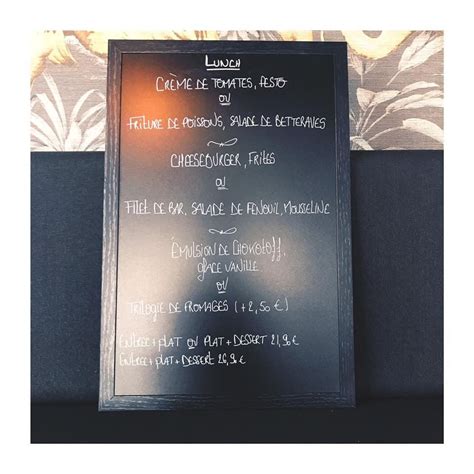 LUNCH
CRÈME DE TOMATES, PESTO
OU
FRITURE DE POISSONS, SALADE DE BETTERAVES
CHEESEBURGER, FRITES
OU
FILET DE BAR, SALADE DE FENOUIL, MOUSSELINE
ÉMULSION DE CHOKOTOFF,
GLACE VANILLE
OU
TRILOGIE DE FROMAGES (+2,50€)
ENTRÉE+PLAT OU PLAT+DESSERT 21,90€
ENTRÉE+PLAT+DESSERT 26,90€